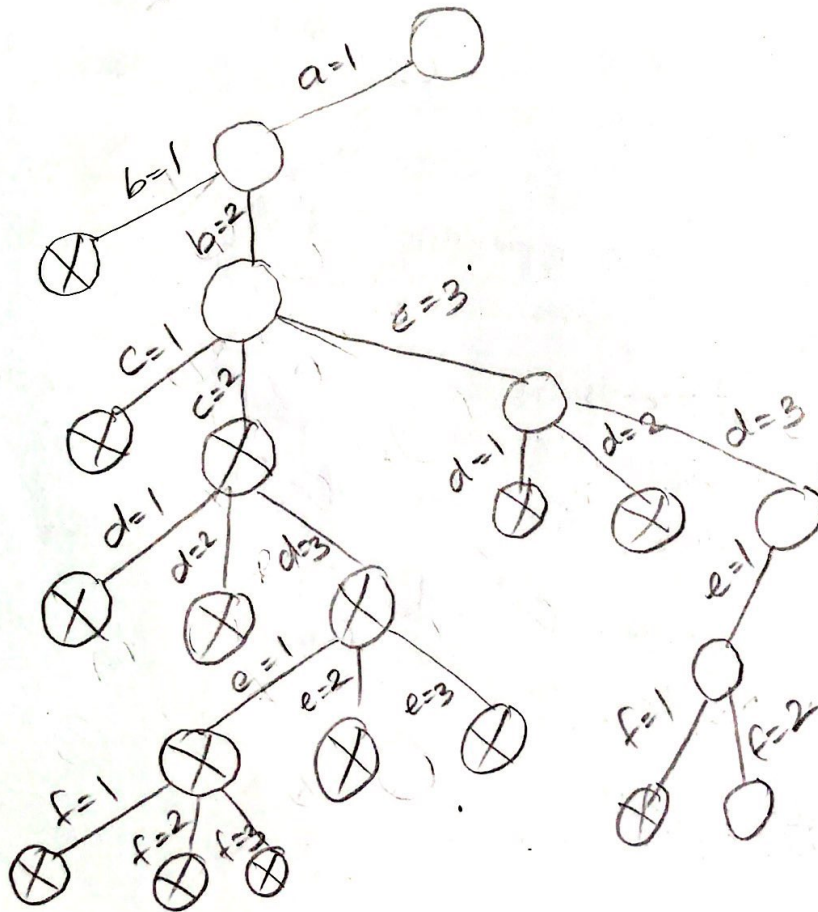 a=1
b=1
b=2
c=1
c=2
c=3
d=1
d=2
d=3
d=1
d=2
d=3
e=1
e=2
e=3
e=1
f=1
f=2
f=1
f=2
f=3